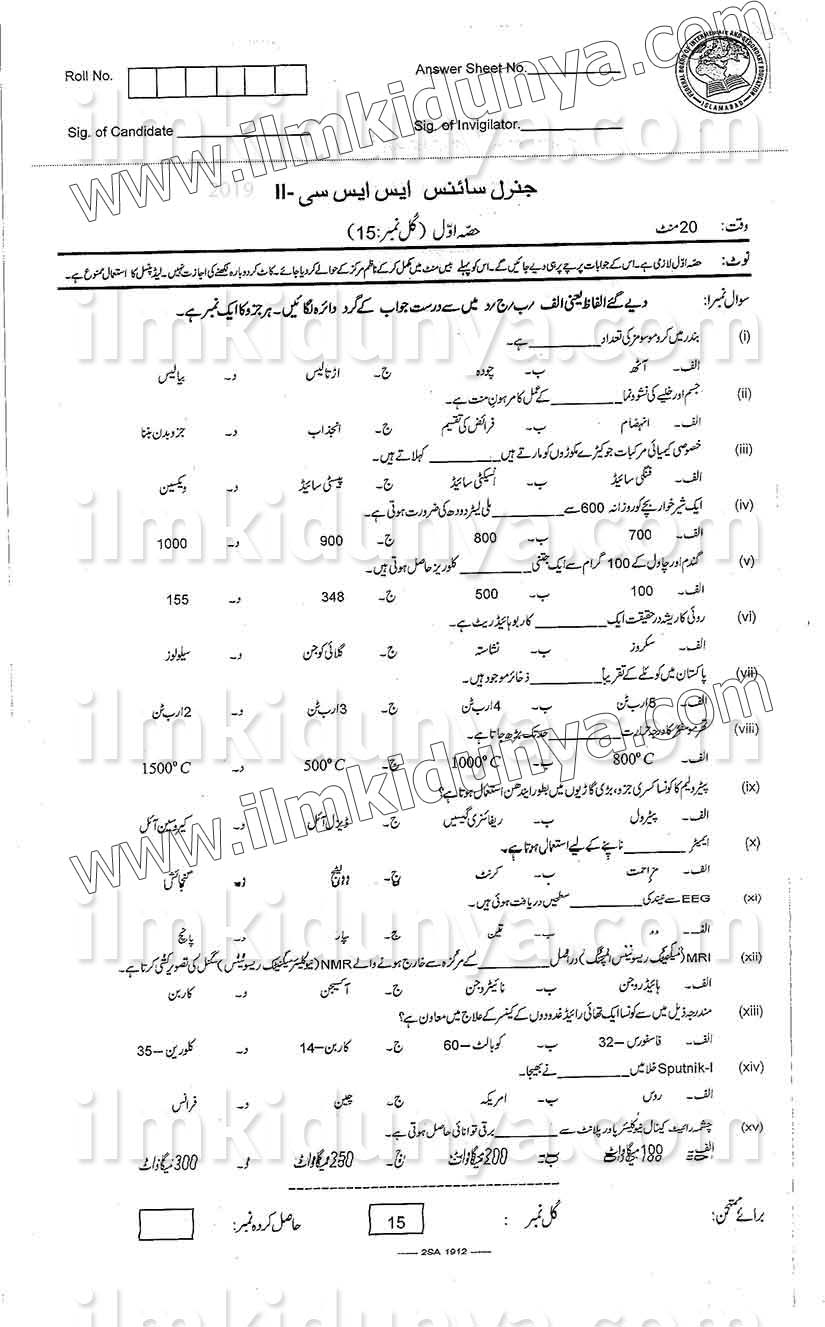 Roll No. Answer Sheet No.
FEDERAL BOARD OF INTERMEDIATE AND SECONDARY EDUCATION ISLAMABAD
Sig. of Candidate Sig. of Invigilator.
www.ilmkidunya.com
2019
جنرل سائنس ایس ایس سی -II
وقت: 20 منٹ حصہ اوّل (کل نمبر:15)
نوٹ: حصہ اوّل لازمی ہے۔ اس کے جوابات پرچے پر ہی دیے جائیں گے۔ اس کو پہلے بیس منٹ میں مکمل کر کے ناظم مرکز کے حوالے کر دیا جائے۔ کاٹ کر دوبارہ لکھنے کی اجازت نہیں۔ لیڈ پنسل کا استعمال ممنوع ہے۔
سوال نمبر۱: دیے گئے الفاظ یعنی الف /ب/ج/د میں سے درست جواب کے گرد دائرہ لگائیں۔ ہر جزو کا ایک نمبر ہے۔
(i) بندر میں کروموسومز کی تعداد ______ ہے۔
الف۔ آٹھ ب۔ چودہ ج۔ اڑتالیس د۔ بیالیس
(ii) جسم اور خلیے کی نشوونما ______ کے عمل کا مرہون منت ہے۔
الف۔ انہضام ب۔ فرائض کی تقسیم ج۔ انجذاب د۔ جزو بدن بننا
(iii) خصوصی کیمیائی مرکبات جو کیڑے مکوڑوں کو مارتے ہیں ______ کہلاتے ہیں۔
الف۔ فنگی سائیڈ ب۔ انسیکٹی سائیڈ ج۔ پیسٹی سائیڈ د۔ ویکسین
(iv) ایک شیر خوار بچے کو روزانہ 600 سے ______ ملی لیٹر دودھ کی ضرورت ہوتی ہے۔
الف۔ 700 ب۔ 800 ج۔ 900 د۔ 1000
(v) گندم اور چاول کے 100 گرام سے ایک جتنی ______ کلوریز حاصل ہوتی ہیں۔
الف۔ 100 ب۔ 500 ج۔ 348 د۔ 155
(vi) روئی کا ریشہ درحقیقت ایک ______ کاربوہائیڈریٹ ہے۔
الف۔ سکروز ب۔ نشاستہ ج۔ گلائی کوجن د۔ سیلولوز
(vii) پاکستان میں کوئلے کے تقریباً ______ ذخائر موجود ہیں۔
الف۔ 8 ارب ٹن ب۔ 4 ارب ٹن ج۔ 3 ارب ٹن د۔ 2 ارب ٹن
(viii) تھرموسفیر کا درجہ حرارت ______ حد تک بڑھ جاتا ہے۔
الف۔ 800°C ب۔ 1000°C ج۔ 500°C د۔ 1500°C
(ix) پیٹرولیم کا کونسا کسری جزو، بڑی گاڑیوں میں بطور ایندھن استعمال ہوتا ہے؟
الف۔ پیٹرول ب۔ ریفائنری گیسیں ج۔ ڈیزل آئل د۔ کیروسین آئل
(x) ایمیٹر ______ ناپنے کے لیے استعمال ہوتا ہے۔
الف۔ مزاحمت ب۔ کرنٹ ج۔ وولٹیج د۔ گنجائش
(xi) EEG سے نیند کی ______ سطحیں دریافت ہوئی ہیں۔
الف۔ دو ب۔ تین ج۔ چار د۔ پانچ
(xii) MRI (میگنیٹک ریسونینس امیجنگ) دراصل ______ کے مرکزہ سے خارج ہونے والے NMR (نیوکلیئر میگنیٹک ریسونینس) سگنل کی تصویر کشی کرتا ہے۔
الف۔ ہائیڈروجن ب۔ نائیٹروجن ج۔ آکسیجن د۔ کاربن
(xiii) مندرجہ ذیل میں سے کونسا ایک تھائی رائیڈ غدودوں کے کینسر کے علاج میں معاون ہے؟
الف۔ فاسفورس –32 ب۔ کوبالٹ –60 ج۔ کاربن –14 د۔ کلورین –35
(xiv) Sputnik-I خلا میں ______ نے بھیجا۔
الف۔ روس ب۔ امریکہ ج۔ چین د۔ فرانس
(xv) چشمہ رائیٹ کینال نیوکلیئر پاور پلانٹ سے ______ برقی توانائی حاصل ہوتی ہے۔
الف۔ 100 میگاواٹ ب۔ 200 میگاواٹ ج۔ 250 میگاواٹ د۔ 300 میگاواٹ
برائے ممتحن: کل نمبر: 15 حاصل کردہ نمبر:
2SA 1912